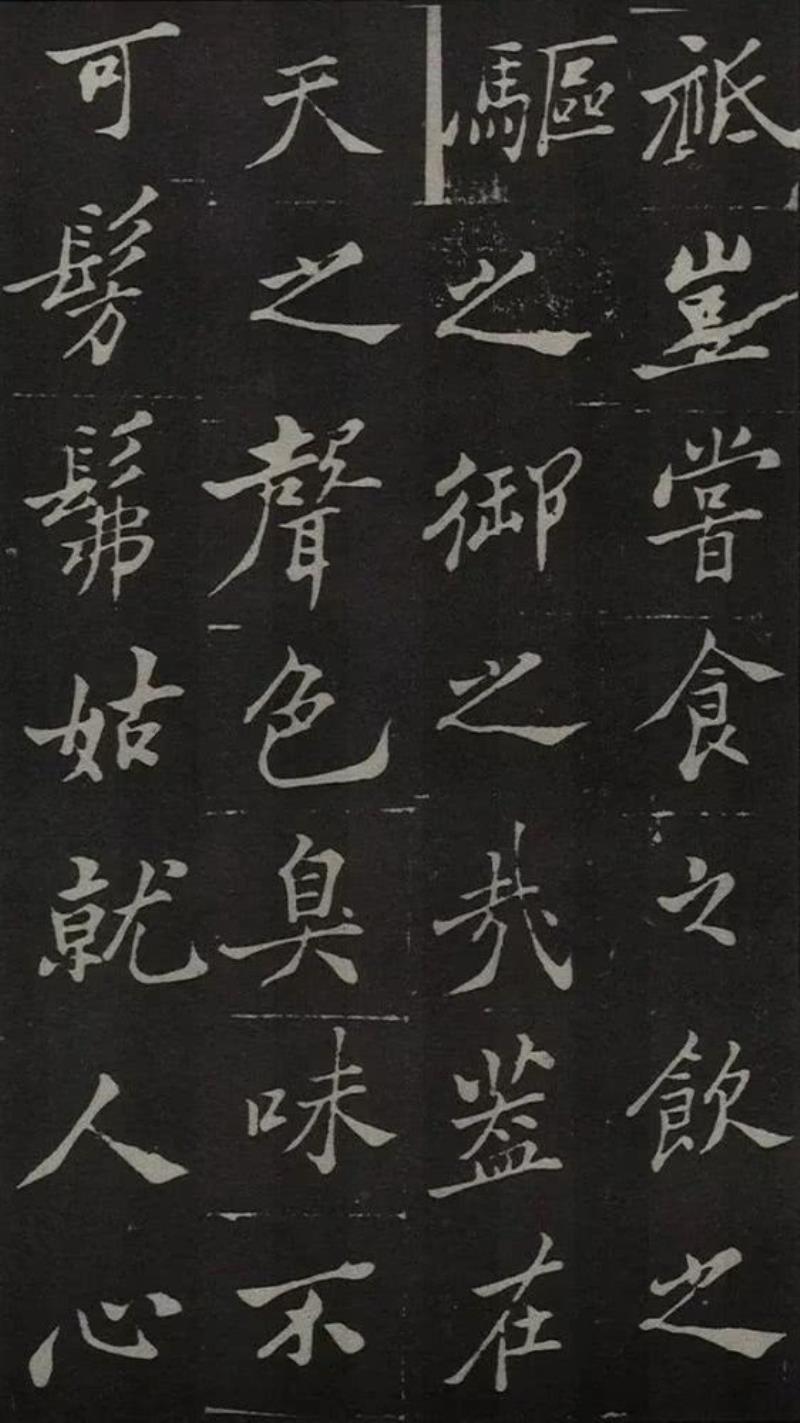 祗豈嘗食之飲之
驅之御之哉蓋在
天之聲色臭味不
可髣髴姑就人心